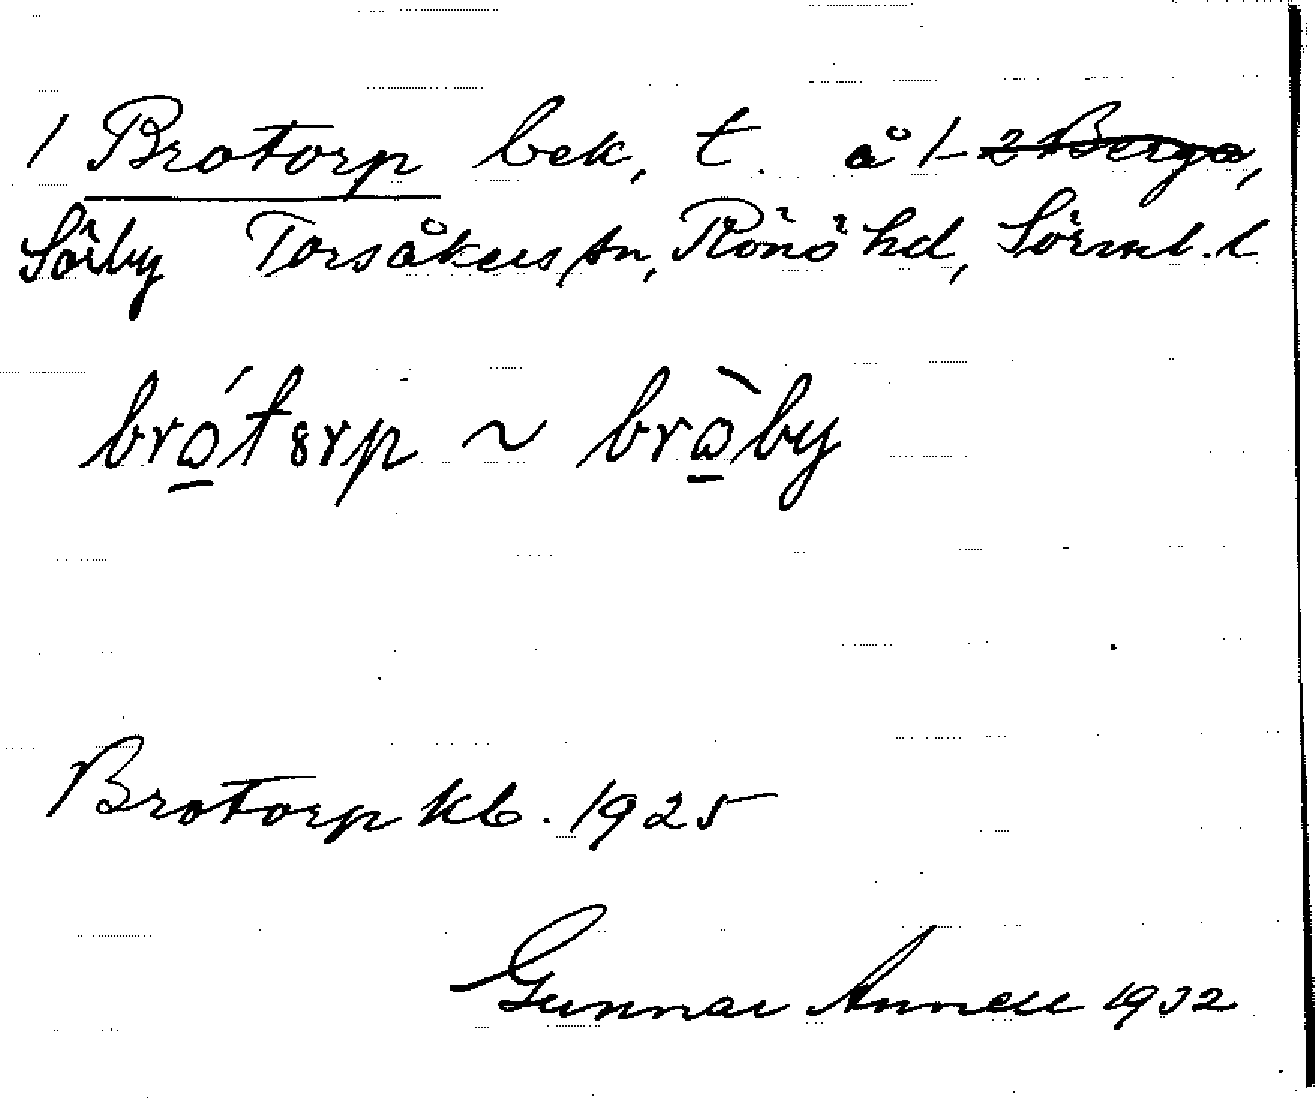 1 Brotorp bek, t. å 1-2 Berga,
Sörby Torsåkers sn, Rönö hd, Sörml. l
brótorp ~ bròby
Brotorp kb. 1925
Gunnar Annell 1932